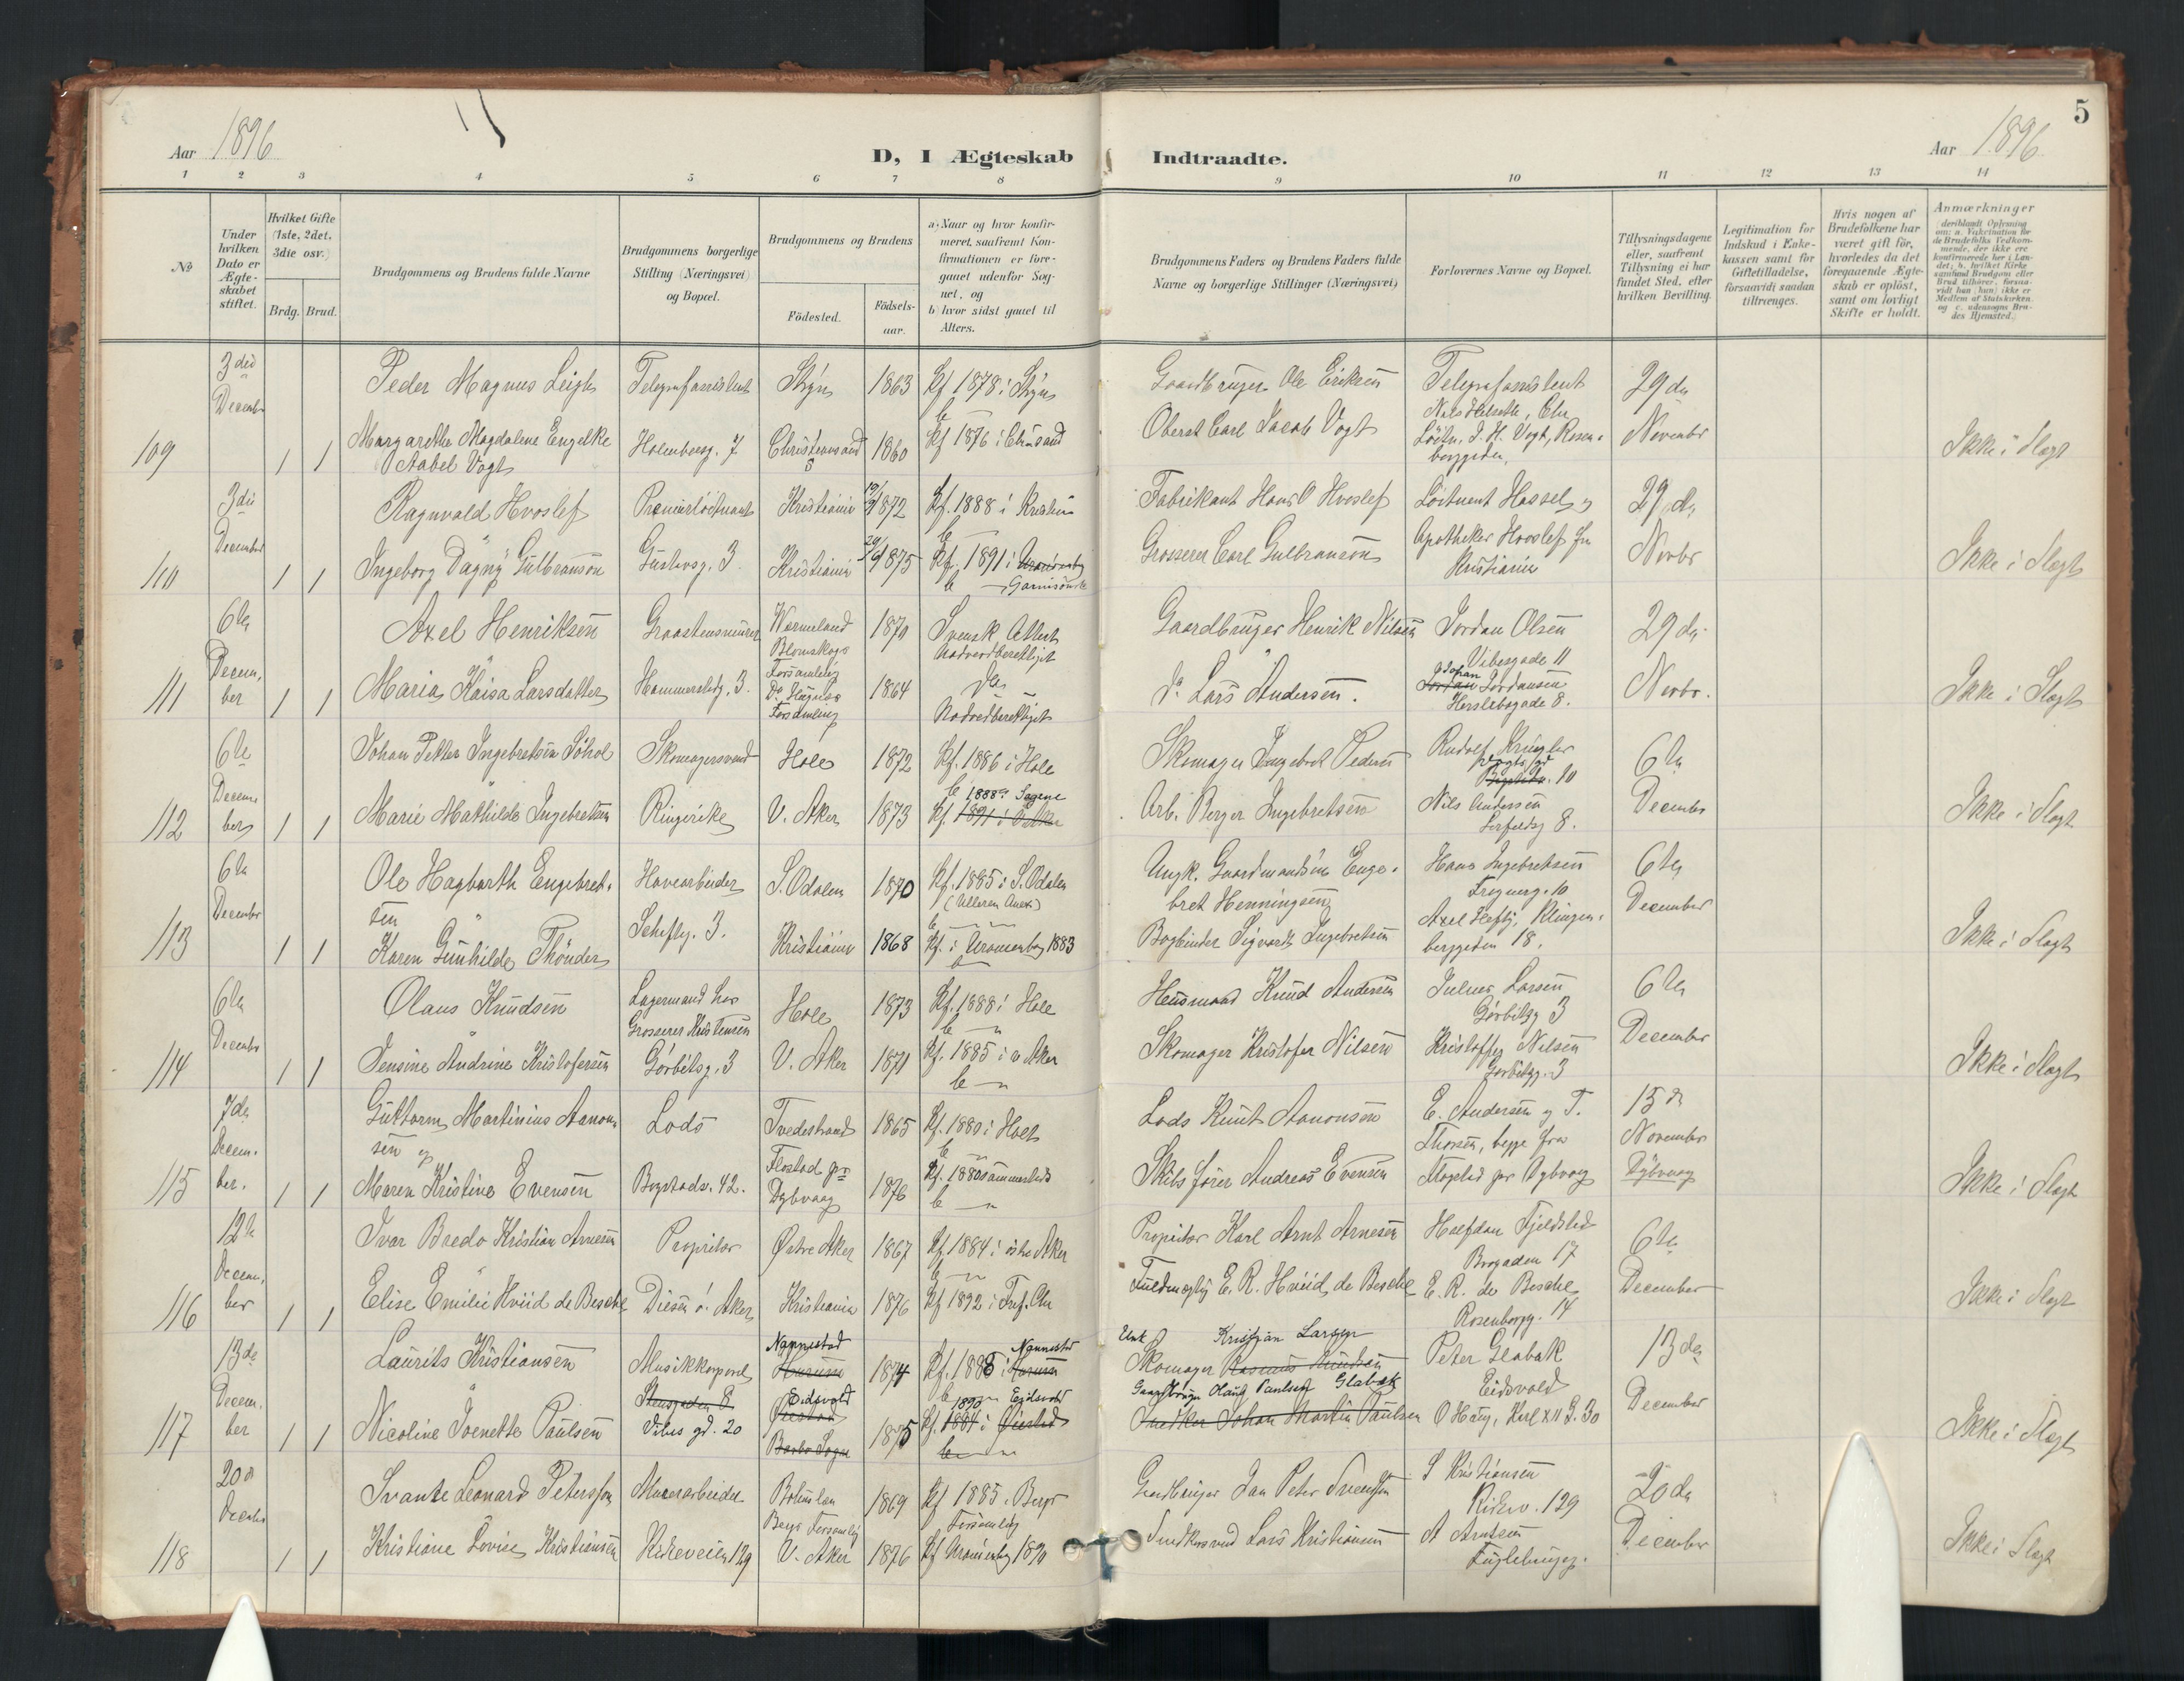 5
Aar 1896
D, I Ægteskab Indtraadte.
Aar 1896
1 2 3 4 5 6 7 8 9 10 11 12 13 14
No
Under hvilken Dato er Ægteskabet stiftet.
Hvilket Gifte (1ste, 2det, 3die osv.)
Brdg. Brud.
Brudgommens og Brudens fulde Navne
Brudgommens borgerlige Stilling (Næringsvei) og Bopæl.
Brudgommens og Brudens
Födested.
Födselsaar.
a) Naar og hvor konfirmeret, saafremt Konfirmationen er foregaaet udenfor Sognet, og
b) hvor sidst gaaet til Alters.
Brudgommens Faders og Brudens Faders fulde Navne og borgerlige Stillinger (Næringsvei)
Forlovernes Navne og Bopæl.
Tillysningsdagene eller, saafremt Tillysning ei har fundet Sted, efter hvilken Bevilling.
Legitimation for Indskud i Enkekassen samt for Giftetilladelse, forsaavidt saadan tiltrænges.
Hvis nogen af Brudefolkene har været gift för, hvorledes da det foregaaende Ægteskab er oplöst, samt om lovligt Skifte er holdt.
Anmærkninger
109 3die December 1 1
Peder Magnus Leigh Telegrafassistent Stryn 1863 Kf. 1878 i Stryn
Gaardbruger Ole Eriksen Telegrafassistent 29de
Margarethe Magdalene Engelke Aabel Vogt Holmboesg. 7 Christiansand S 1860 Kf 1876 i Chrsand
Oberst Carl Jacob Vogt Löitn. J. H. Vogt, Rosenborggaden Novembr Ikke i Slægt
110 3die December 1 1
Ragnvald Hvoslef Premierlöitnant Kristiania 1872 Kf. 1888 i Kristiania
Fabrikant Hans O Hvoslef Löitnent Hassel og 29de
Ingeborg Dagny Gulbranson Gustavsg. 3 Kristiania 1875 Kf. 1891 i Uranienborg Garnisonsk
Grosserer Carl Gulbranson Apotheker Hvoslef fra Kristiania Novbr Ikke i Slægt
111 6te December 1 1
Axel Henriksen Graastensmurer Wærmeland Blomskogs Forsamling 1870 Svensk Attest Nadverdberettiget
Gaardbruger Henrik Nilsen Jordan Olsen Vibesgade 11 29de
Maria Kaisa Larsdatter Hammerstadg. 3. Do Forsamling 1864 Do Nadverdberettiget
Do Lars Andersen. Johan Jordansen Herslebsgade 8. Novbr. Ikke i Slægt
112 6te December 1 1
Johan Petter Ingebretsen Skomagersvend Hole 1872 Kf. 1886 i Hole
Skomager Ingebret Pedersen Rudolf Krugler 10 6te
Marie Mathilde Ingebretsen Ringerike V. Aker 1873 Kf. 1888 Sagene 1891 i V Aker
Arb. Berger Ingebretsen Nils Andersen 8. December Ikke i Slægt
113 6te December 1 1
Ole Hagbarth Engebretsen Havearbeider S. Odalen 1870 Kf. 1885 i S. Odalen (Ulleren Anex)
Ungk. Gaardmandsön Engebret Henningsen Hans Ingebretsen Frognerg. 10 6te
Karen Gunhilde Thönder Schefteg. 3. Kristiania 1868 Kf. i Uranienborg 1883
Bogbinder Sigvardt Ingebretsen Axel Hefty, Klingenberggaden 18. December Ikke i Slægt
114 6te December 1 1
Olaus Knudsen Lagermand hos Grosserer Kristensen Hole 1873 Kf. 1888 i Hole
Husmand Knud Andersen Julius Larsen Görbitzg 3 6te
Jensine Andrine Kristofersen Görbitsg. 3 V. Aker 1871 Kf. 1885 i v Aker
Skomager Kristofer Nilsen Kristoffer Nilsen Görbitzg. 3 December Ikke i Slægt
115 7de December. 1 1
Guttorm Martinius Aanonsen og Lods Tvedestrand 1865 Kf. 1880 i Holt
Lods Knut Aanonsen E. Andersen og T. Thorsen, begge fra 15de November
Maren Kristine Evensen Bogstadv. 42. Flostad pr Dybvaag 1876 Kf. 1880 sammesteds
Skibsförer Andreas Evensen Flagstad pr Dybvaag Dybvaag Ikke i Slægt
116 12te December 1 1
Ivar Bredo Kristian Arnesen Propritær Østre Aker 1867 Kf. 1884 i östre Aker
Propritær Karl Arnt Arnesen Halfdan Fjeldstad Brogaden 17 6te
Elise Emilie Hviid de Besche Disen ö. Aker Kristiania 1876 Kf 1892 i Tref. Chr
Fuldmægtig E. R. Hviid de Besche E. R. de Besche Rosenborgg. 14 December Ikke i Slægt
117 13de December 1 1
Laurits Kristiansen Musikkorporal Nannestad 1874 Kf. 1888 i Nannestad
Enk Kristian Larsen Skomager Rasmus Knudsen Peter Glabak Eidsvold 13de
Nicoline Joenette Paulsen Stensgaden 8 Vibes gd. 20 Eidsvold Øiestad Barbo Sogn 1875 Kf. 1890 Eidsvold 1884 i Øiestad
Gaardbruger Hans Paulsen Glabak Snedker Johan Martin Paulsen O Haug, Karl XII G. 30 December Ikke i Slægt
118 20de December 1 1
Svante Leonard Petersson Murerarbeider Bohuslen Bergs Forsamling 1869 Kf 1885 i Bergs Forsamling
Gaardbruger Jan Peter Svensson S Kristiansen Kirkev. 129 20de
Kristiane Lovise Kristiansen Kirkeveien 129 V. Aker 1876 Kf Uranienborg 1890
Snedkersvend Lars Kristiansen A Arntsen December Ikke i Slægt